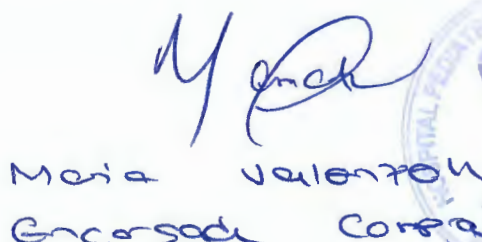 Maria Valenzuel
Encargada Compra
HOSPITAL PEDIAT